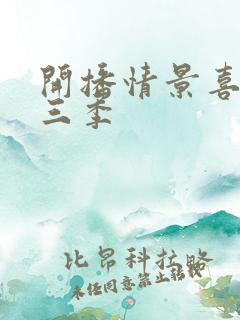 開播情景喜
三季
比昂科拉略
未经同意禁止转载